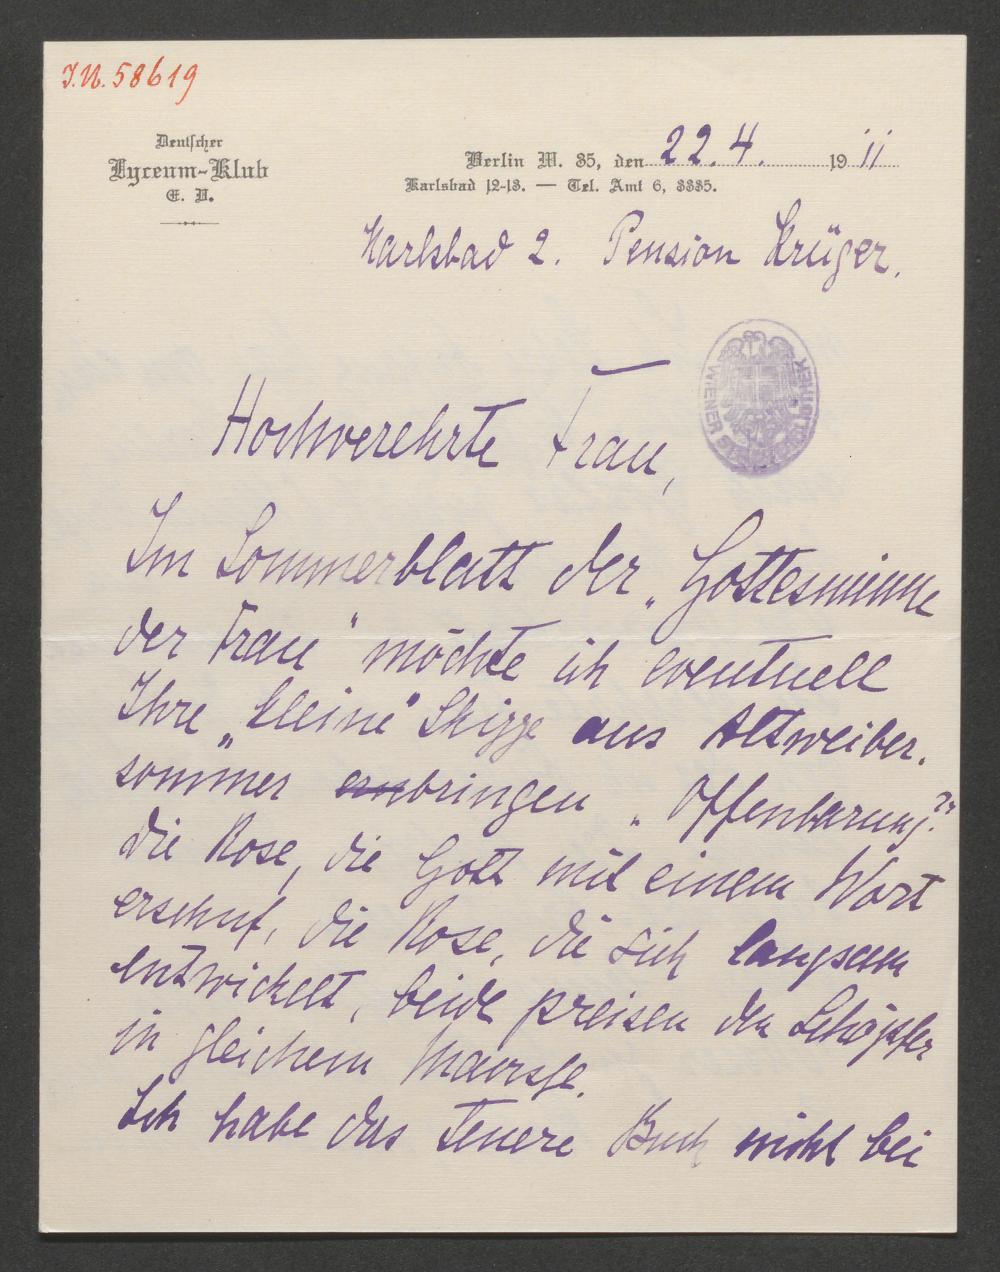 J.N. 58619
Deutscher
Lyceum-Klub
E. V.
Berlin W. 35, den 22. 4. 1911
Karlsbad 12-13. — Tel. Amt 6, 3335.
Karlsbad 2. Pension Krüger.
WIENER BIBLIOTHEK
Hochverehrte Frau,
Im Sommerblatt der „Gottesminne
der Frau" möchte ich eventuell
Ihre „kleine" Skizze aus Altweiber-
sommer bringen „Offenbarung?"
die Rose, die Gott mit einem Wort
erschuf, die Rose, die sich langsam
entwickelt, beide preisen den Schöpfer
in gleichem Maasse.
Ich habe das teuere Buch nicht bei